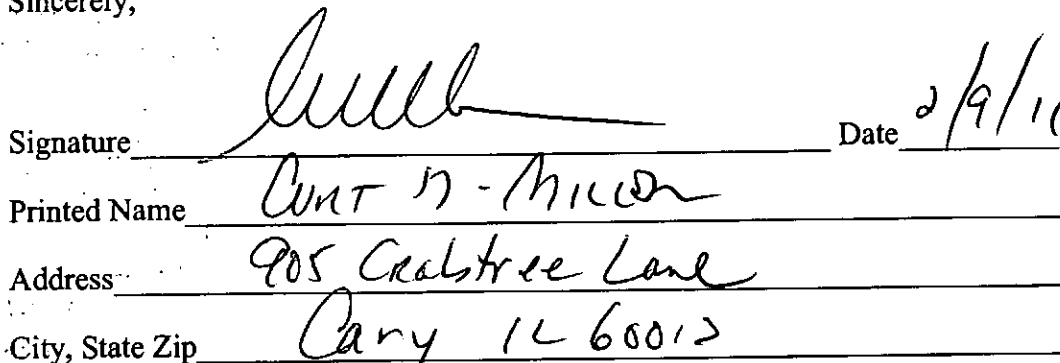 Sincerely,
Signature Date 2/9/1
Printed Name Curt M. Miller
Address 905 Crabtree Lane
City, State Zip Cary IL 60013